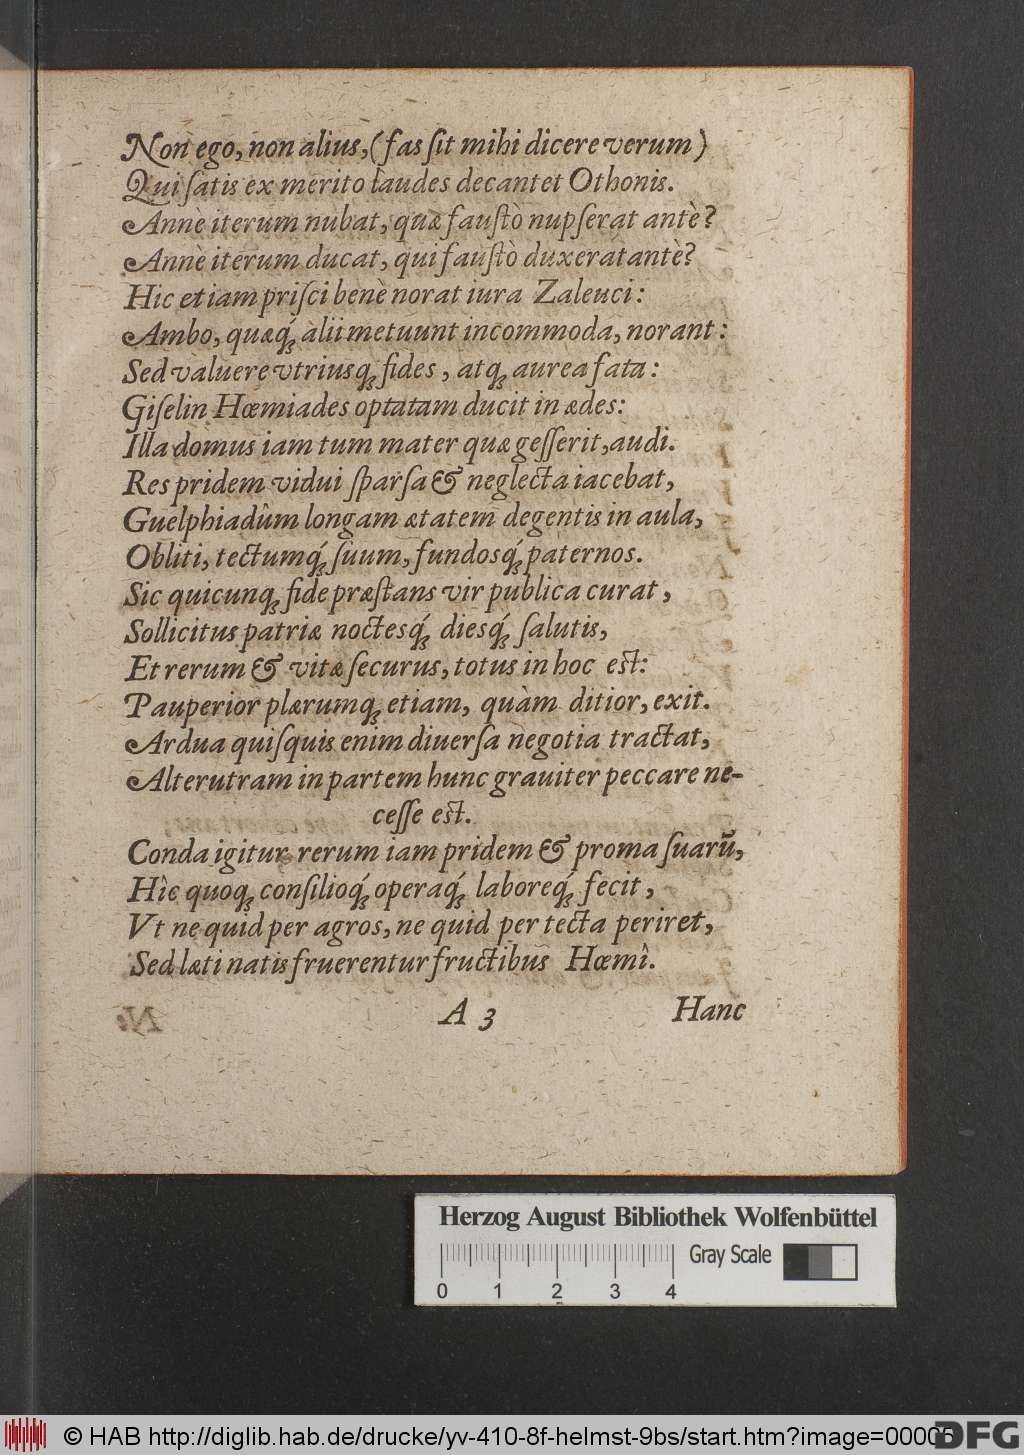 Non ego, non alius, (fas ſit mihi dicere verum)
Qui ſatis ex merito laudes decantet Othonis.
Annè iterum nubat, quæ fauſtò nupſerat antè?
Annè iterum ducat, qui fauſtò duxerat antè?
Hic etiam priſci benè norat iura Zaleuci:
Ambo, quæq́; alii metuunt incommoda, norant:
Sed valuere vtriusq; fides, atq; aurea fata:
Giſelin Hœmiades optatam ducit in ædes:
Illa domus iam tum mater quæ geſſerit, audi.
Res pridem vidui ſparſa & neglecta iacebat,
Guelphiadûm longam ætatem degentis in aula,
Obliti, tectumq́; ſuum, fundosq́; paternos.
Sic quicunq; fide præſtans vir publica curat,
Sollicitus patriæ noctesq́; diesq́; ſalutis,
Et rerum & vitæ ſecurus, totus in hoc est:
Pauperior plærumq; etiam, quàm ditior, exit.
Ardua quiſquis enim diuerſa negotia tractat,
Alterutram in partem hunc grauiter peccare ne-
ceſſe est.
Conda igitur rerum iam pridem & proma ſuarū,
Hîc quoq; conſilioq́; operaq́; laboreq́; fecit,
Vt ne quid per agros, ne quid per tecta periret,
Sed læti natis fruerentur fructibus Hœmî.
A 3 Hanc
Herzog August Bibliothek Wolfenbüttel
Gray Scale
0 1 2 3 4
© HAB http://diglib.hab.de/drucke/yv-410-8f-helmst-9bs/start.htm?image=00005
DFG